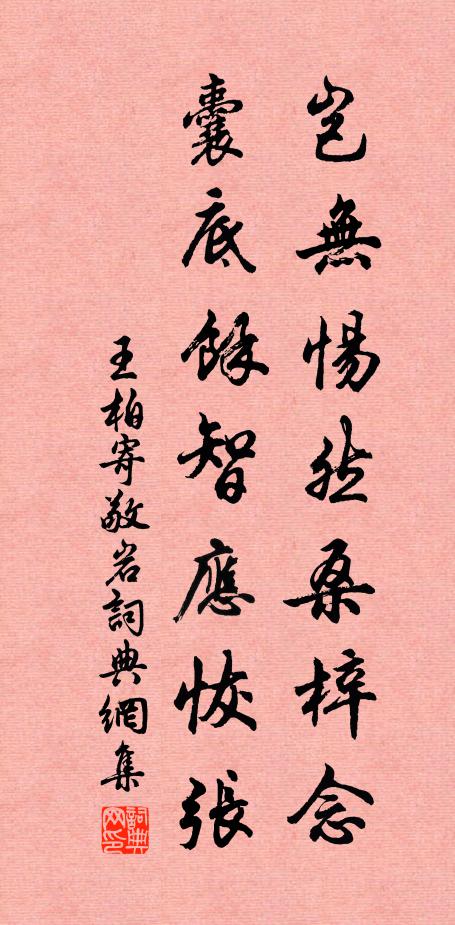 豈無惕然桑梓念
囊底餘智應恢張
王柏寄敬岩詞典網集
詞典网印